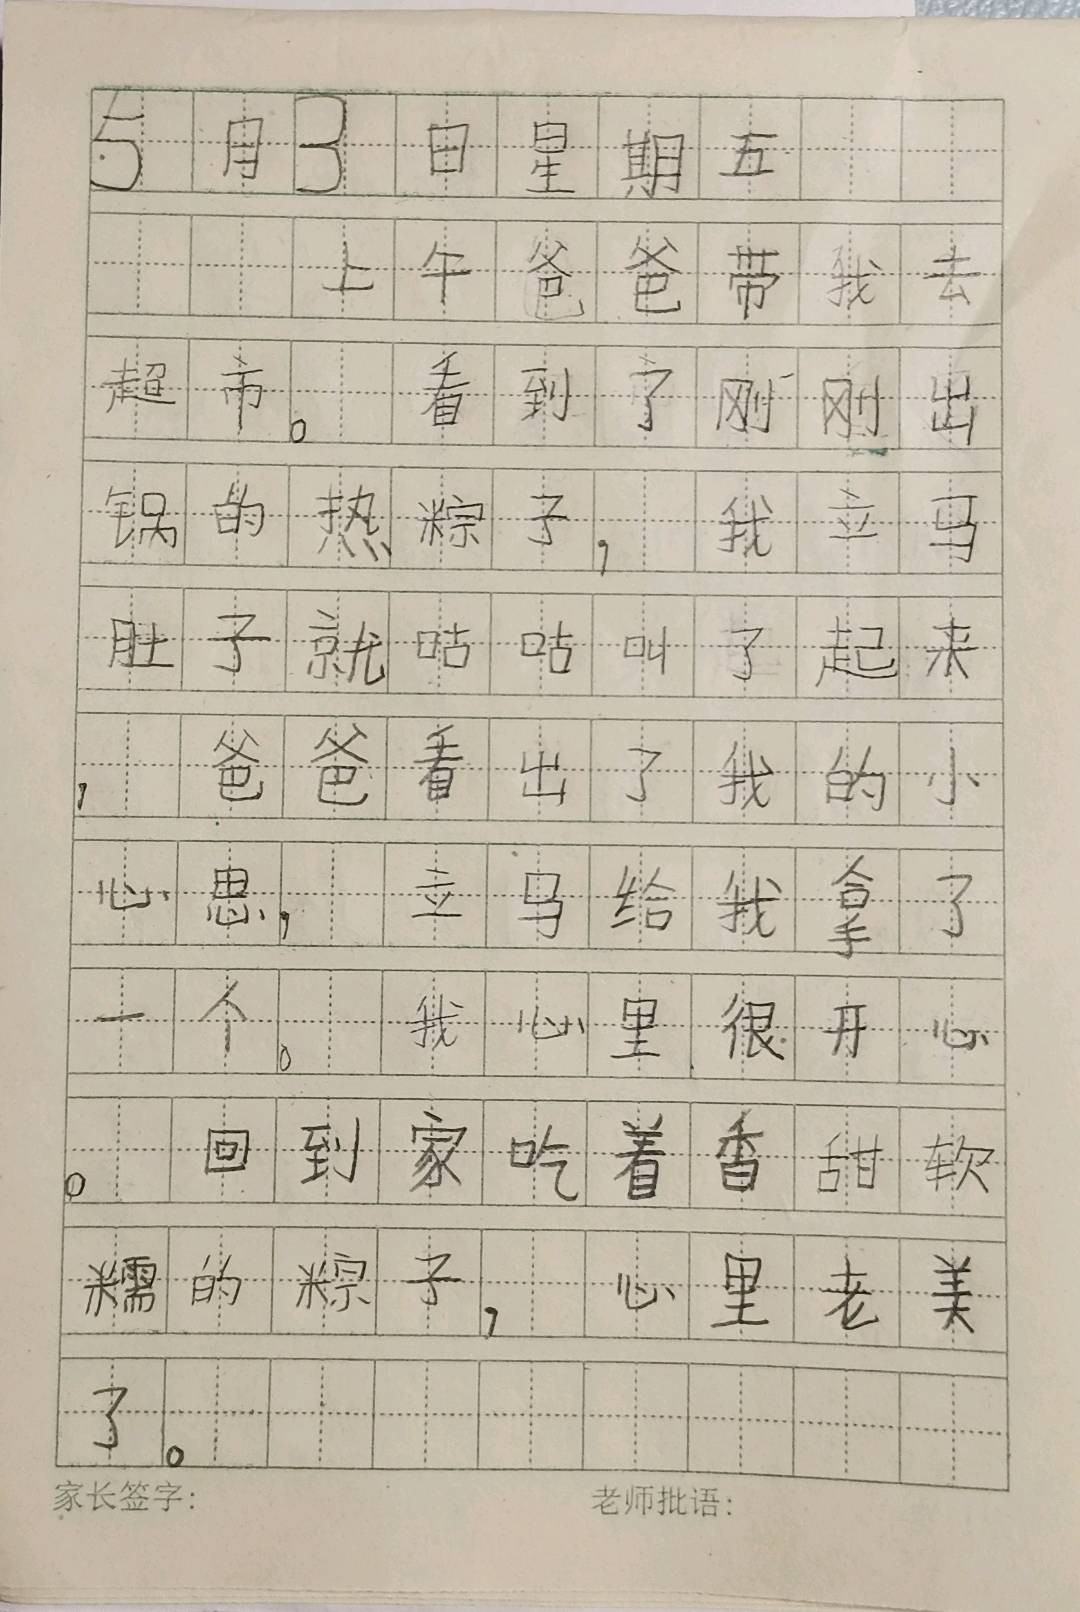 5月3日星期五
上午爸爸带我去
超市。看到了刚刚出
锅的热粽子,我立马
肚子就咕咕叫了起来
,爸爸看出了我的小
心思,立马给我拿了
一个。我心里很开心
。回到家吃着香甜软
糯的粽子,心里老美
了。
家长签字: 老师批语: